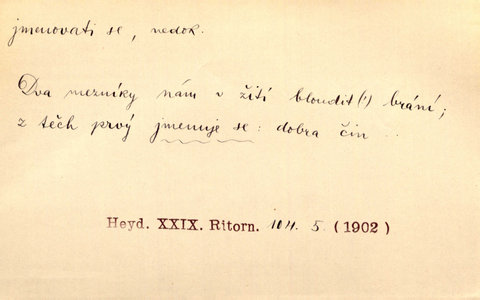 jmenovati se, nedok.
Dva mezníky nám v žití bloudit(!) brání;
z těch prvý jmenuje se: dobra čin ..
Heyd. XXIX. Ritorn. 104. 5. (1902)